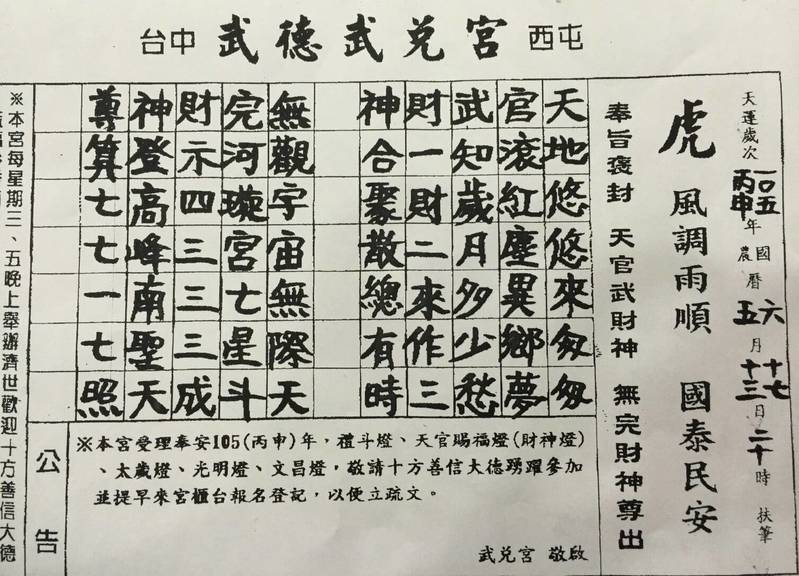 台中 武德武兌宮 西屯
天運歲次一〇五丙申年國農曆六五月十七十三日二十時 扶筆
虎 風調雨順 國泰民安
奉旨褒封 天官武財神 無完財神尊出
天地悠悠來匆匆
官滾紅塵異鄉夢
武知歲月多少愁
財一財二來作三
神合聚散總有時
無觀宇宙無際天
完河璇宮七星斗
財示四三三三成
神登高峰南聖天
尊算七七一七照
公告
※本宮受理奉安105(丙申)年,禮斗燈、天官賜福燈(財神燈)
、太歲燈、光明燈、文昌燈,敬請十方善信大德踴躍參加
並提早來宮櫃台報名登記,以便立疏文。
武兌宮 敬啟
※本宮每星期三、五晚上舉辦濟世歡迎十方善信大德